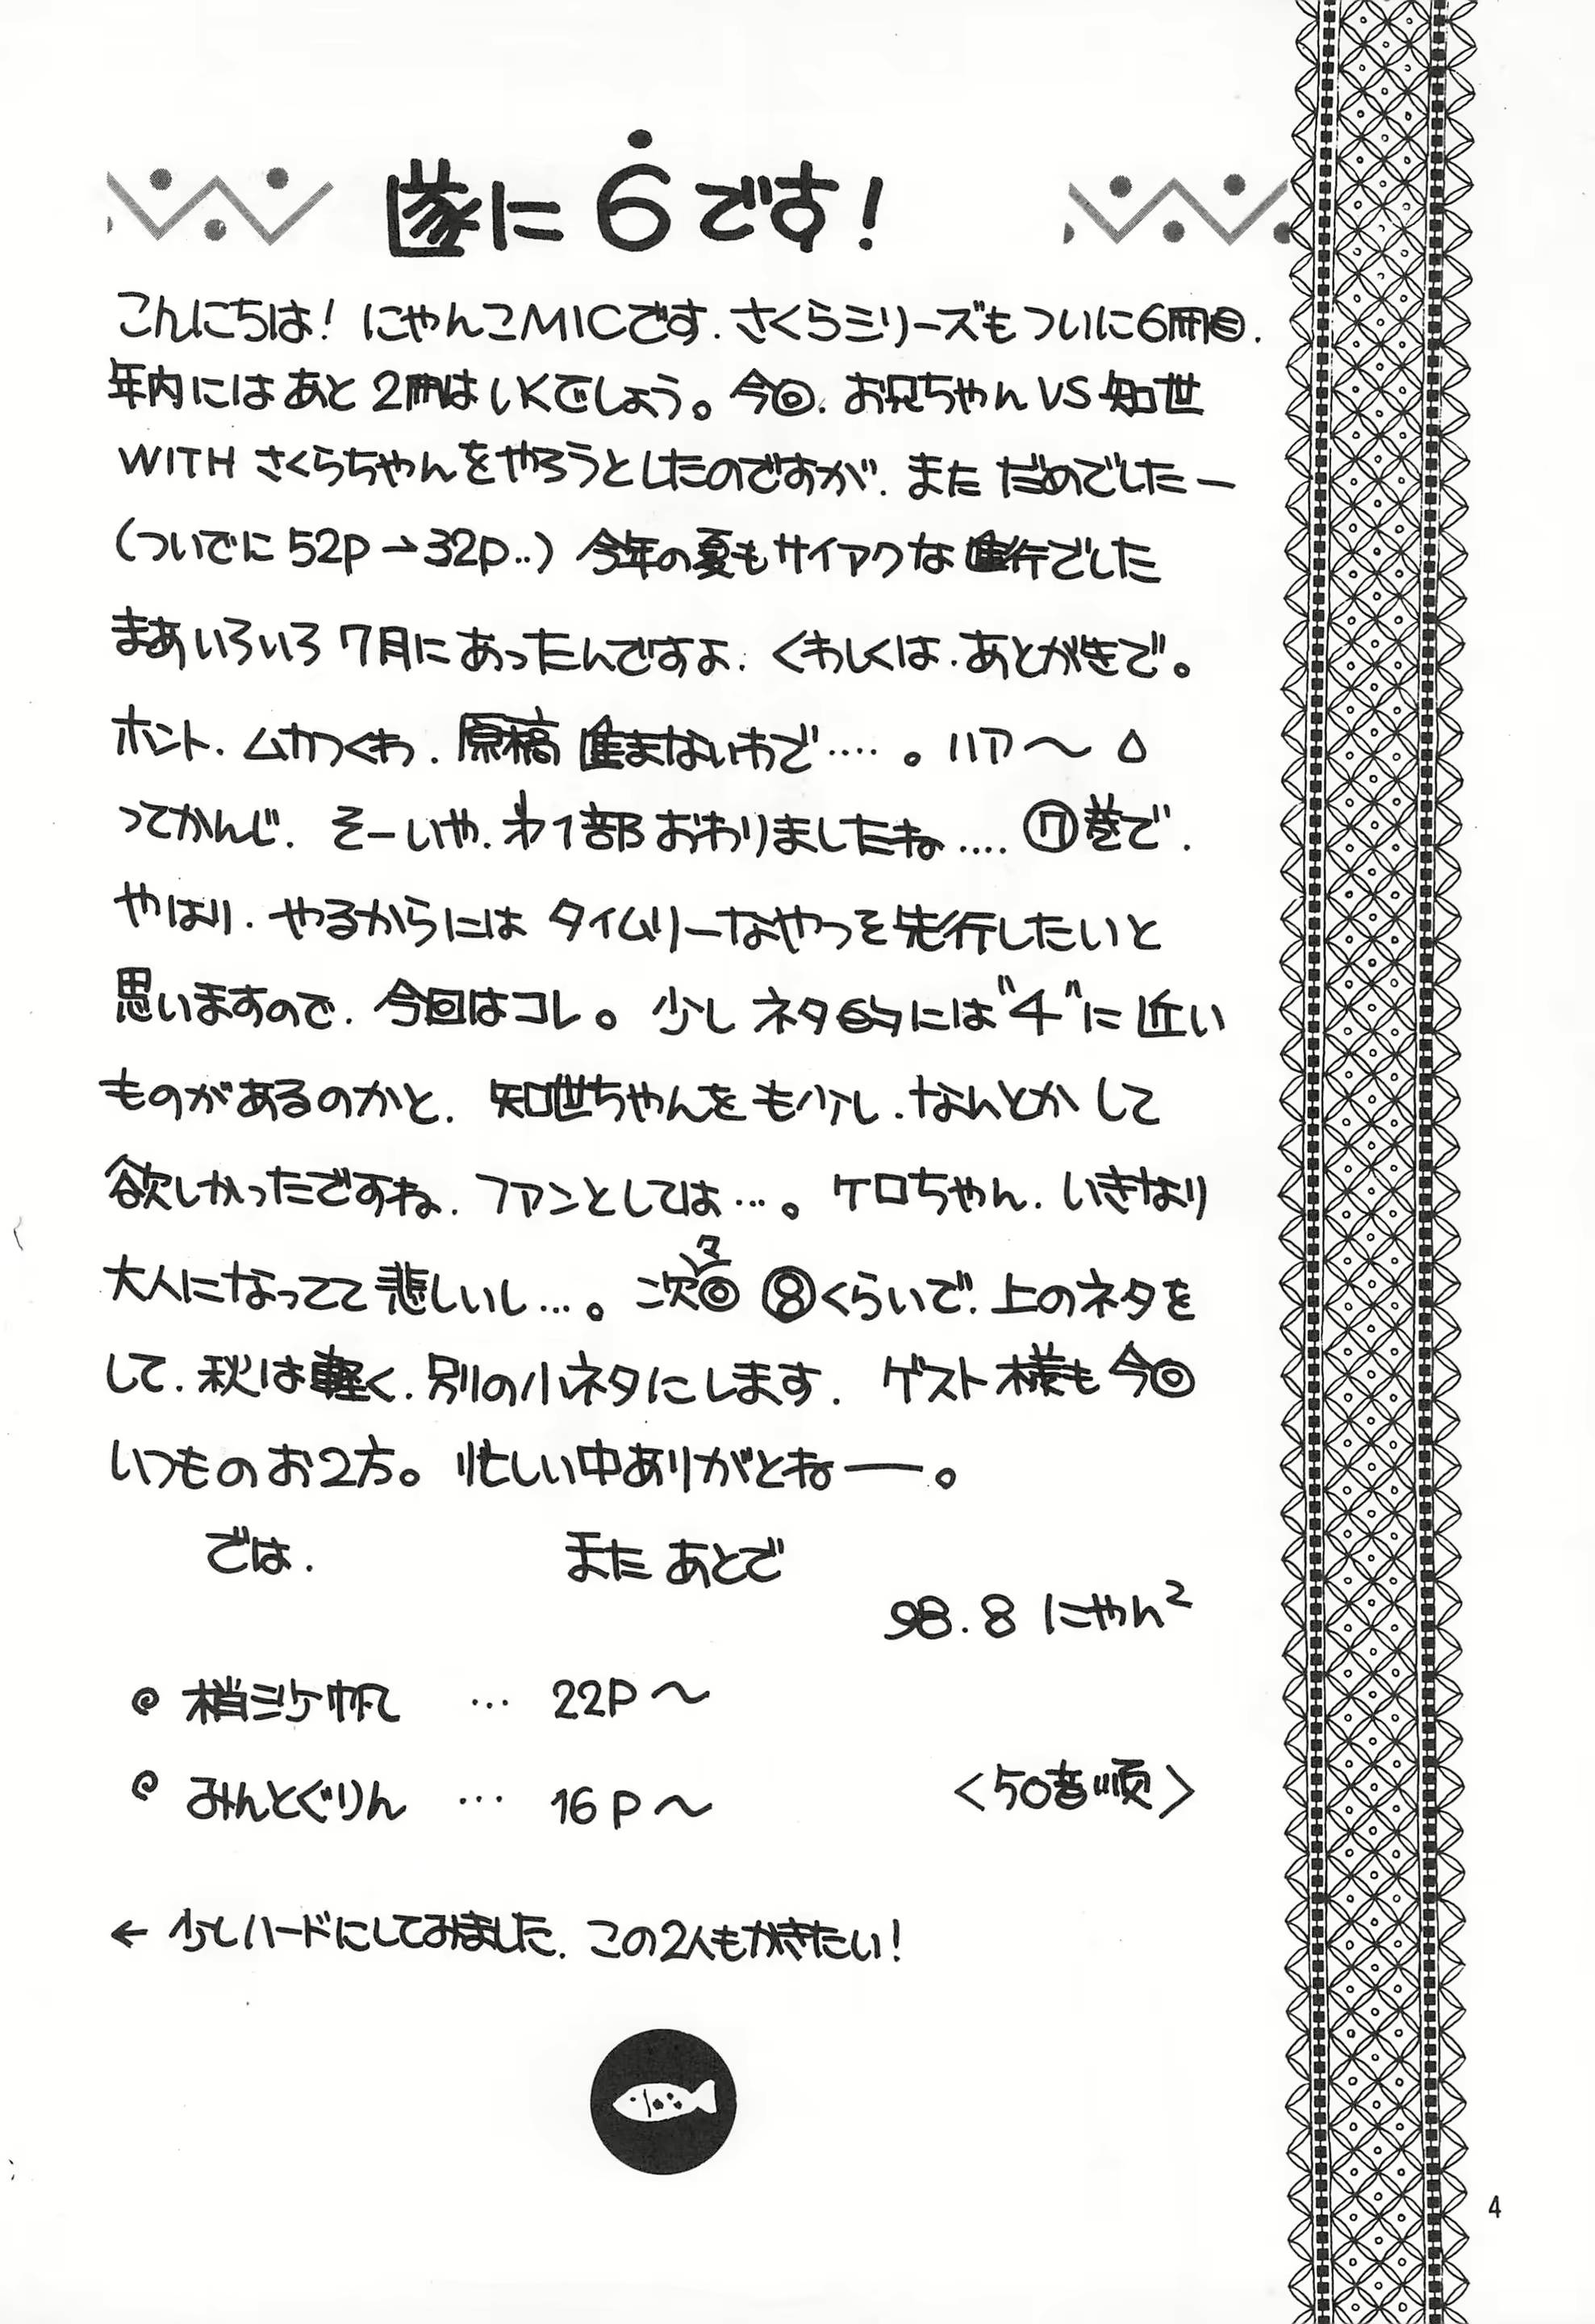 遂に6です!
こんにちは! にゃんこMICです. さくらシリーズもついに6冊目.
年内にはあと2冊はいくでしょう。今回. お兄ちゃんVS知世
WITH さくらちゃんをやろうとしたのですが. まただめでしたー
(ついでに52p→32p..) 今年の夏もサイアクな進行でした
まあいろいろ7月にあったんですよ. くわしくは. あとがきで。
ホント. ムカつくわ. 原稿進まないわで‥‥。ハア〜
ってかんじ. そーいや. 才1部おわりましたね‥‥ ⑦巻で.
やはり. やるからにはタイムリーなやつを先行したいと
思いますので. 今回はコレ。少しネタ的には"4"に近い
ものがあるのかと. 知世ちゃんをも少し. なんとかして
欲しかったですね. ファンとしては…。ケロちゃん. いきなり
大人になってて悲しいし…。次々回⑧くらいで. 上のネタを
して. 秋は軽く. 別の小ネタにします. ゲスト様も今回
いつものお2方。忙しい中ありがとねー。
では. またあとで
98.8 にゃん²
梢沙帆 … 22P〜
みんとぐりん … 16P〜 <50音順>
← 少しハードにしてみました. この2人もかきたい!
4